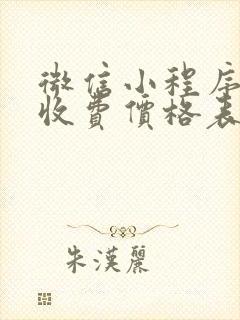 微信小程序
收費價格表
朱漢麗